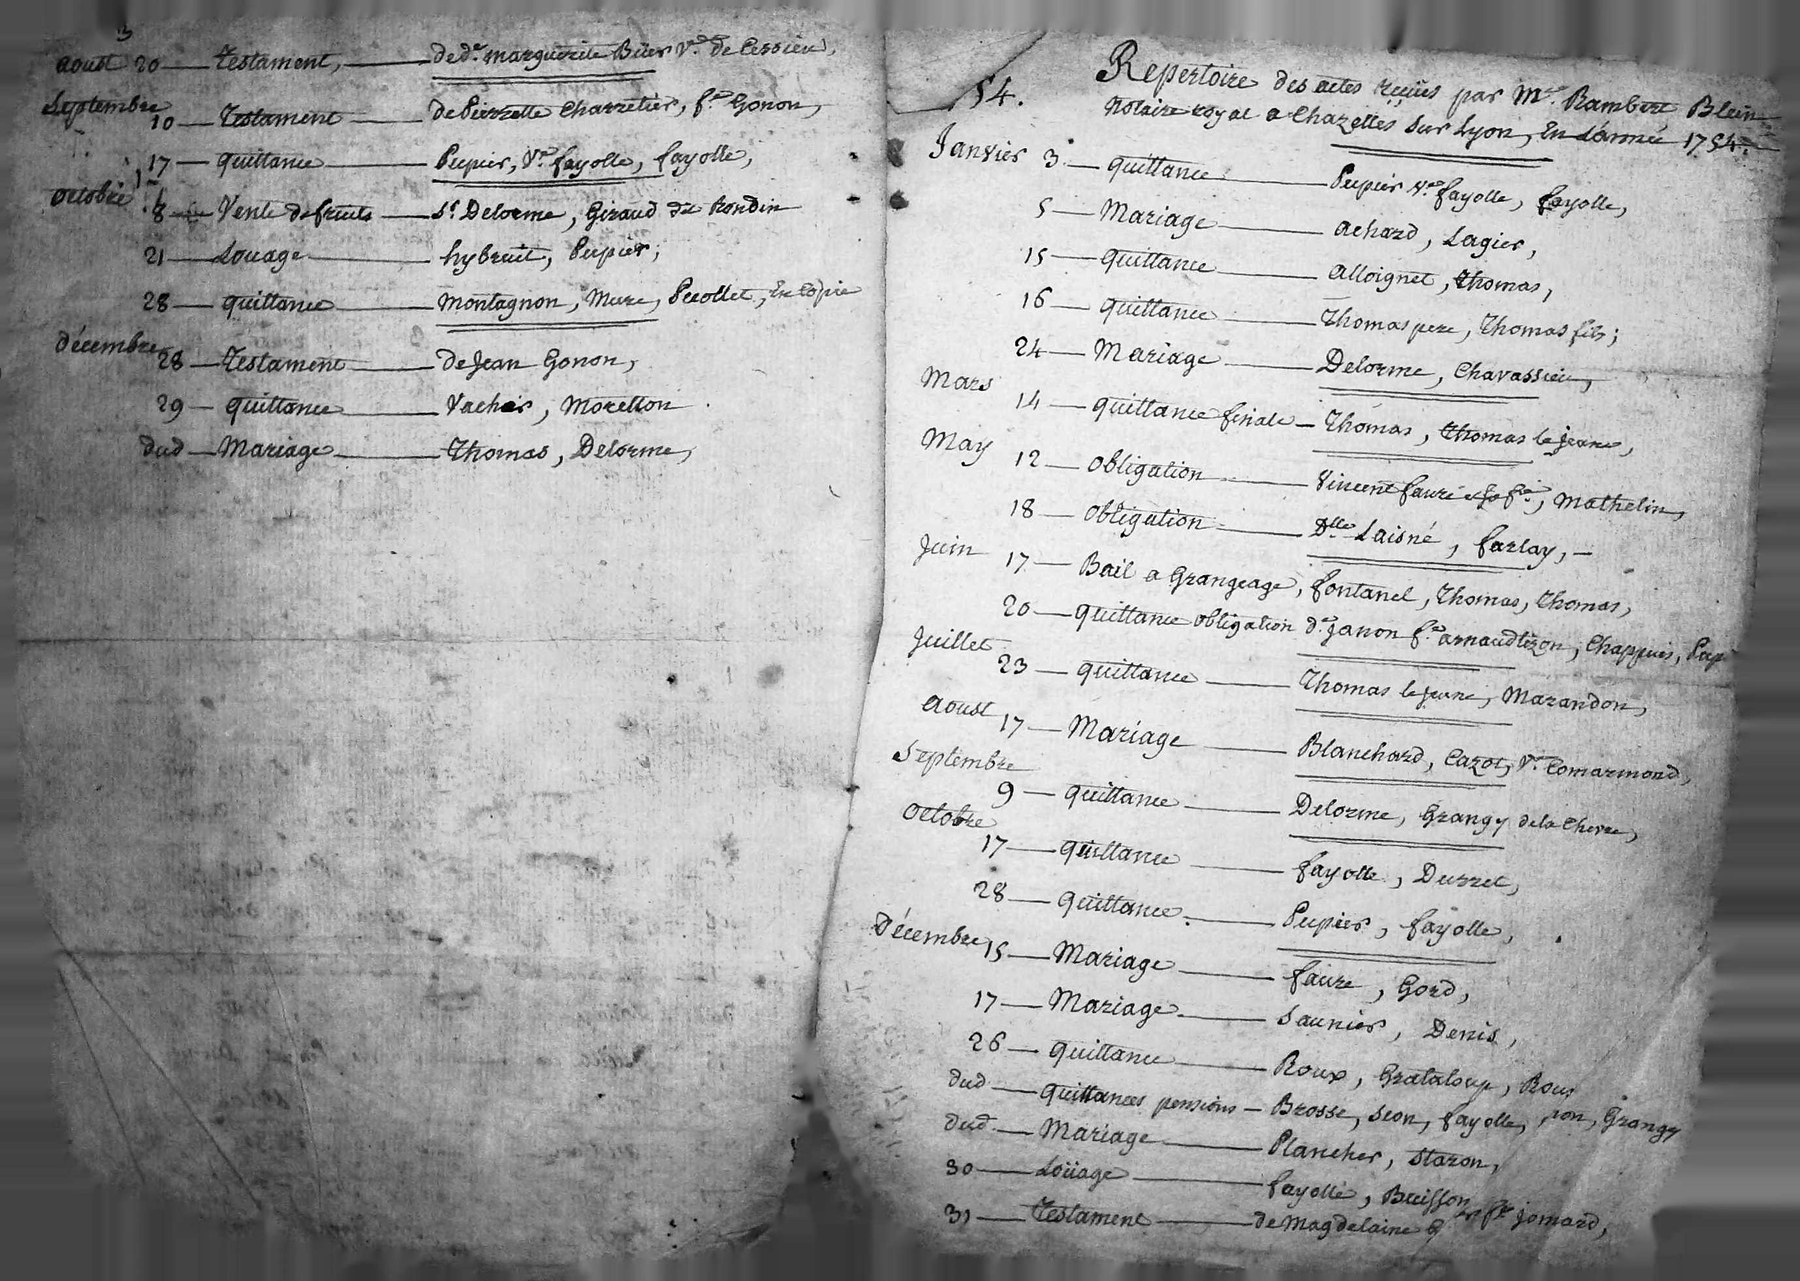 3
Aoust 20 — Testament, — de de. marguerite Büer Ve. de Cessieu,
Septembre
10 — Testament — de Pierrette Charretier, fe. Gonon,
17 — quittance — Pupier, Ve. fayolle, fayolle,
octobre
8 — Vente de fruits — Sr. Delorme, Giraud de Rondin
21 — Louage — hybruit, Pupier;
28 — quittance — Montagnon, Mure, Pecollet, En Copie
décembre
28 — Testament — de Jean Gonon,
29 — quittance — Vacher, Morellon
dud — Mariage — Thomas, Delorme,
54.
Repertoire des actes reçüs par Me. Rambert Blein
Notaire royal a Chazelles sur Lyon, En L'année 1754.
Janvier 3 — quittance — Pupier Ve. fayolle, fayolle,
5 — Mariage — achard, Lagier,
15 — quittance — alloignet, Thomas,
16 — quittance — Thomas pere, Thomas fils;
24 — Mariage — Delorme, Chavassieu,
Mars
14 — quittance finale — Thomas, Thomas le jeune,
May
12 — obligation — Vincent faure et sa fe., Mathelin,
18 — obligation — Dlle. Laisné, farlay, —
Juin
17 — Bail a Grangeage, fontanel, Thomas, Thomas,
20 — quittance obligation de. Janon fe. arnaudtizon, Chappuis, Pup
Juillet
23 — quittance — Thomas le jeune, Marandon,
Aoust
17 — Mariage — Blanchard, Cazot, Ve. Comarmond,
Septembre
9 — quittance — Delorme, Grangy de la Chevre,
octobre
17 — quittance — fayolle, Durret,
28 — quittance — Pupier, fayolle,
Décembre 15 — Mariage — faure, Gord,
17 — Mariage — Saunier, Denis,
26 — quittance — Roux, Grataloup, Roux
dud — quittances pensions — Brosse, Seon, fayolle, Grangy
dud — Mariage — Plancher, Staron,
30 — Loüage — fayolle, Buisson
31 — Testament — de Magdelaine fe. Jomard,